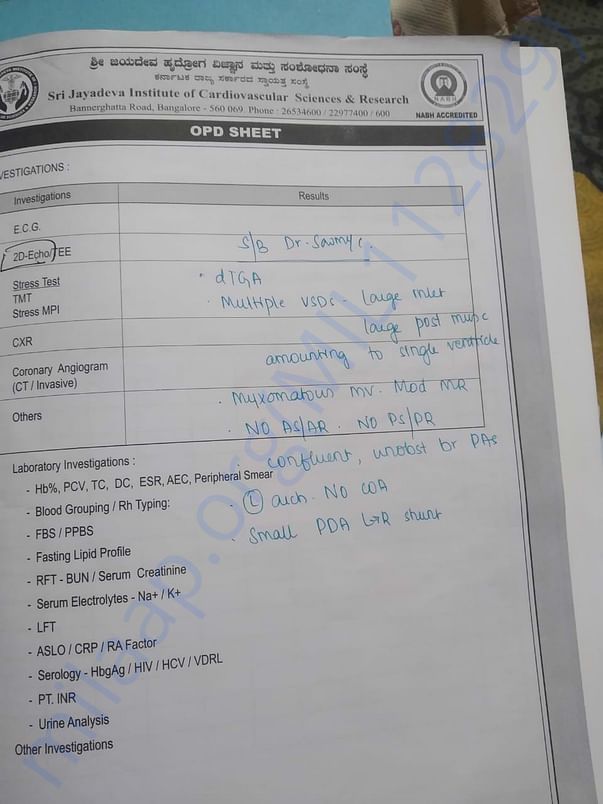 ಶ್ರೀ ಜಯದೇವ ಹೃದ್ರೋಗ ವಿಜ್ಞಾನ ಮತ್ತು ಸಂಶೋಧನಾ ಸಂಸ್ಥೆ
ಕರ್ನಾಟಕ ರಾಜ್ಯ ಸರ್ಕಾರದ ಸ್ವಾಯತ್ತ ಸಂಸ್ಥೆ
Sri Jayadeva Institute of Cardiovascular Sciences & Research
Bannerghatta Road, Bangalore - 560 069. Phone : 26534600 / 22977400 / 600
NABH
NABH ACCREDITED
OPD SHEET
VESTIGATIONS :
Investigations Results
E.C.G.
2D-Echo/TEE S/B Dr. Sowmya C.
Stress Test · dTGA
TMT
Stress MPI · Multiple VSDs - large inlet
CXR large post musc
Coronary Angiogram amounting to single ventricle
(CT / Invasive)
· Myxomatous MV. Mod MR
Others
· NO AS/AR. NO PS/PR
Laboratory Investigations : · confluent, unobst br PAs
- Hb%, PCV, TC, DC, ESR, AEC, Peripheral Smear
- Blood Grouping / Rh Typing: · (L) arch. NO COA
- FBS / PPBS · Small PDA L→R shunt
- Fasting Lipid Profile
- RFT - BUN / Serum Creatinine
- Serum Electrolytes - Na+ / K+
- LFT
- ASLO / CRP / RA Factor
- Serology - HbgAg / HIV / HCV / VDRL
- PT. INR
- Urine Analysis
Other Investigations